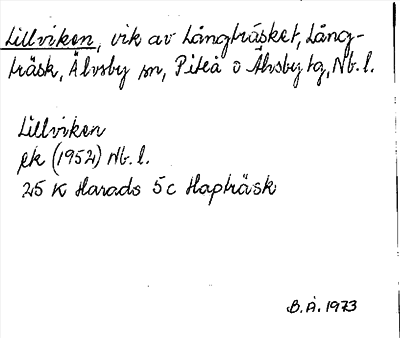 Lillviken, vik av Långträsket, Lång-
träsk, Älvsby sn, Piteå o Älvsby tg, Nb. l.
Lillviken
ek (1952) Nb. l.
25 K Harads 5c Hapträsk
B. Å. 1973